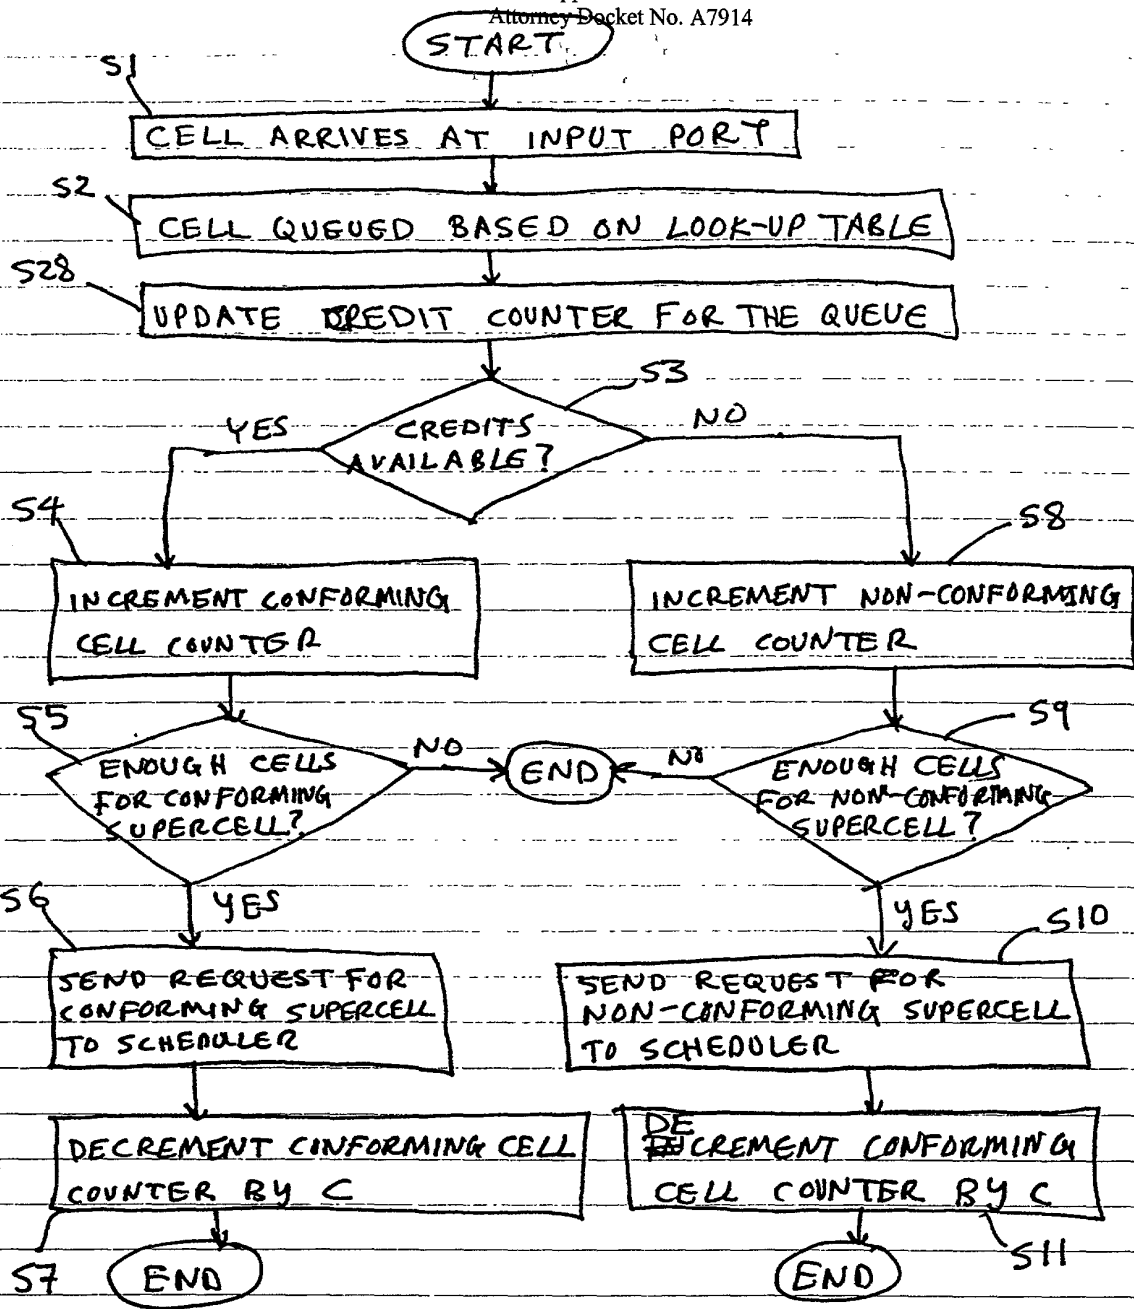 Attorney Docket No. A7914
START
S1
CELL ARRIVES AT INPUT PORT
S2
CELL QUEUED BASED ON LOOK-UP TABLE
S28
UPDATE CREDIT COUNTER FOR THE QUEUE
S3
CREDITS
AVAILABLE?
YES
NO
S4
INCREMENT CONFORMING
CELL COUNTER
S8
INCREMENT NON-CONFORMING
CELL COUNTER
S5
ENOUGH CELLS
FOR CONFORMING
SUPERCELL?
NO
END
NO
S9
ENOUGH CELLS
FOR NON-CONFORMING
SUPERCELL?
S6
YES
SEND REQUEST FOR
CONFORMING SUPERCELL
TO SCHEDULER
YES
S10
SEND REQUEST FOR
NON-CONFORMING SUPERCELL
TO SCHEDULER
DECREMENT CONFORMING CELL
COUNTER BY C
S7
END
DECREMENT CONFORMING
CELL COUNTER BY C
S11
END